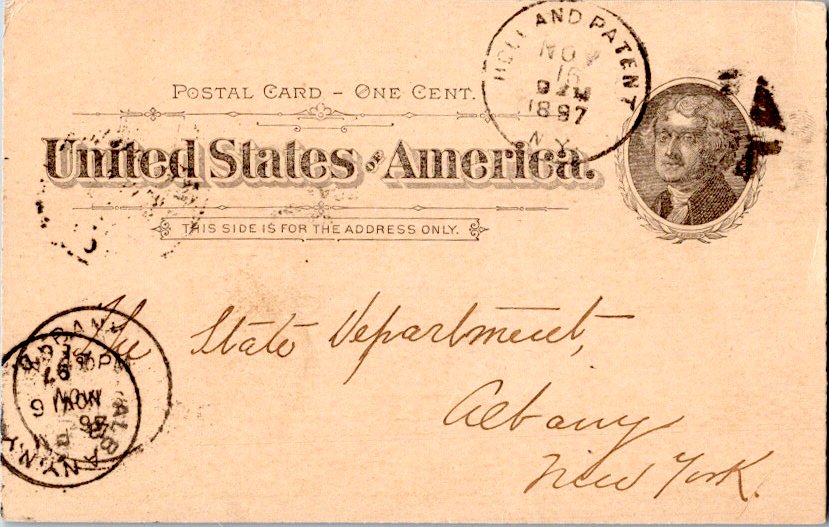 HOLLAND PATENT
NOV
16
9 AM
1897
N.Y.
POSTAL CARD – ONE CENT.
United States OF America.
THIS SIDE IS FOR THE ADDRESS ONLY.
The State Department,
Albany
New York.
ALBANY, N.Y.
NOV 16
97